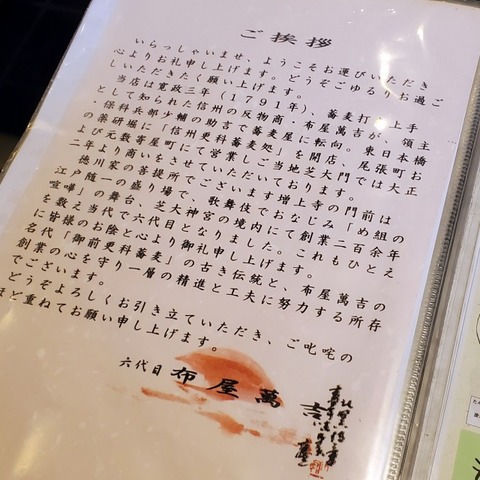 ご挨拶
いらっしゃいませ、ようこそお運びいただき
心よりお礼申し上げます。どうぞごゆるりお過ご
しいただきたく願い上げます。
当店は寛政三年（1791年）、蕎麦打ち上手
として知られた信州の反物商・布屋萬吉が、領主
・保科兵部少輔の助言で蕎麦屋に転向。東日本橋
の薬研堀に「信州更科蕎麦処」を開店、尾張町お
よび元数寄屋町にて営業しご当地芝大門では大正
二年より商いをさせていただいております。
徳川家の菩提所でございます増上寺の門前は
江戸随一の盛り場で、歌舞伎でおなじみ「め組の
喧嘩」の舞台、芝大神宮の境内にて創業二百余年
を数え当代で六代目となりました。これもひとえ
に皆様のお陰と心より御礼申し上げます。
名代「御前更科蕎麦」の古き伝統と、布屋萬吉の
創業の心を守り一層の精進と工夫に努力する所存
でございます。
どうぞよろしくお引き立ていただき、ご叱咤の
ほど重ねてお願い申し上げます。
六代目 布屋萬吉